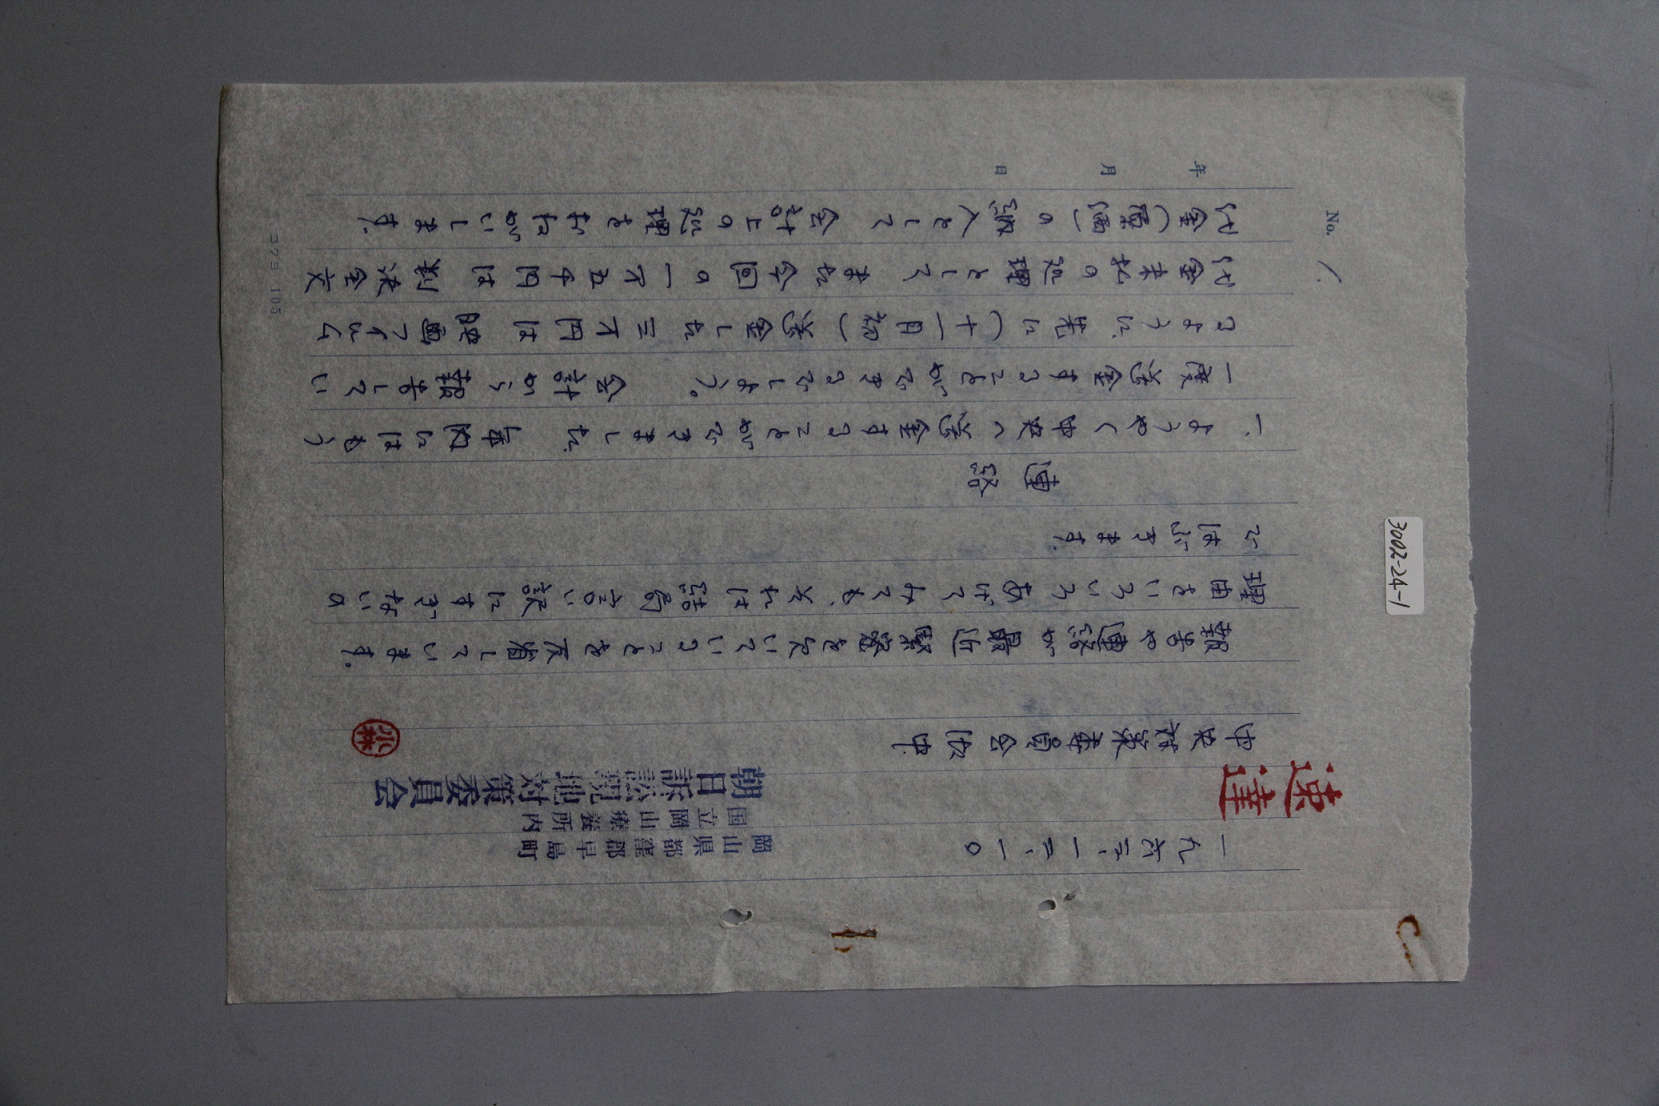 速達
一九六三、一二、一〇
岡山県都窪郡早島町
国立岡山療養所内
朝日訴訟現地対策委員会
小林
中央対策委員会御中
報告や連絡が最近緊密を欠いていることを反省しています。
理由をいろいろあげてみても、それは結局言い訳にすぎないの
ではぶきます。
連絡
一、ようやく中央へ送金することができました。年内にはもう
一度送金することができるでしょう。 会計から報告してい
るように、先に(十一月初)送金した三万円は映画フイルム
代金未払の処理として、また今回の一万五千円は判決全文
代金(第一回)の納入として会計上の処理をおねがいします。
年 月 日
No. 1
コクヨ 105
3002-24-1